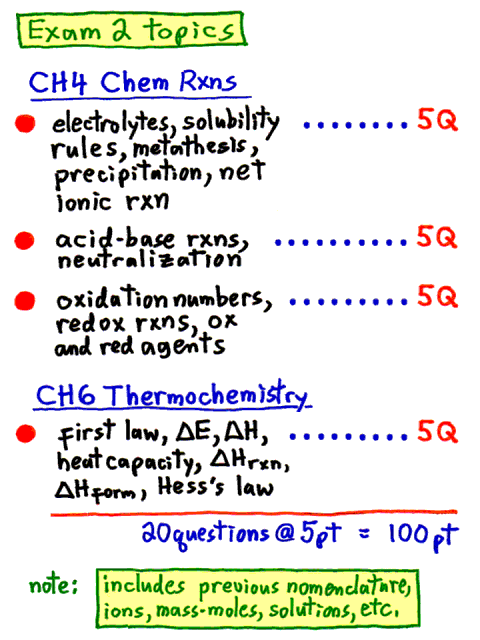 Exam 2 topics
CH4 Chem Rxns
electrolytes, solubility ........ 5Q
rules, metathesis,
precipitation, net
ionic rxn
acid-base rxns, .......... 5Q
neutralization
oxidation numbers, ......... 5Q
redox rxns, ox
and red agents
CH6 Thermochemistry
first law, ΔE, ΔH, ......... 5Q
heat capacity, ΔHrxn,
ΔHform, Hess's law
20 questions @ 5pt = 100 pt
note: includes previous nomenclature,
ions, mass-moles, solutions, etc.